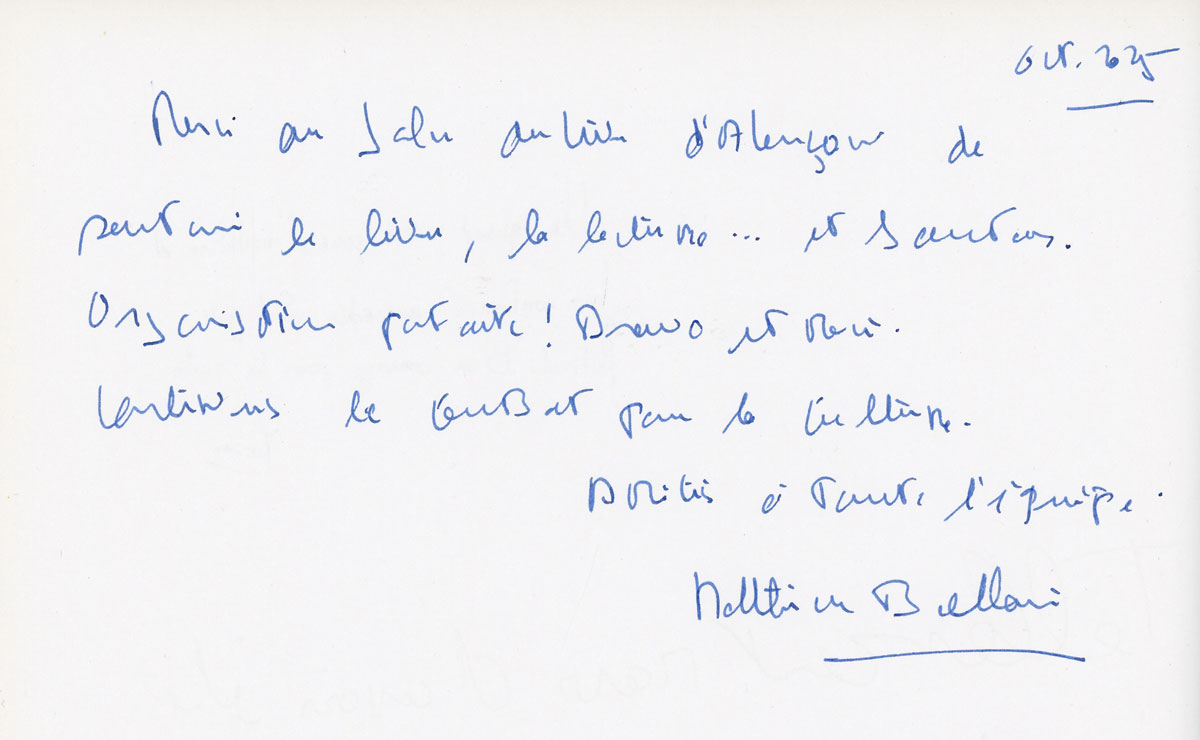 oct. 25
Merci au Salon du livre d'Alençon de
soutenir le livre, la lecture... et
Organisation parfaite! Bravo et Merci.
Continuons le combat pour la culture.
Amitiés à toute l'équipe.